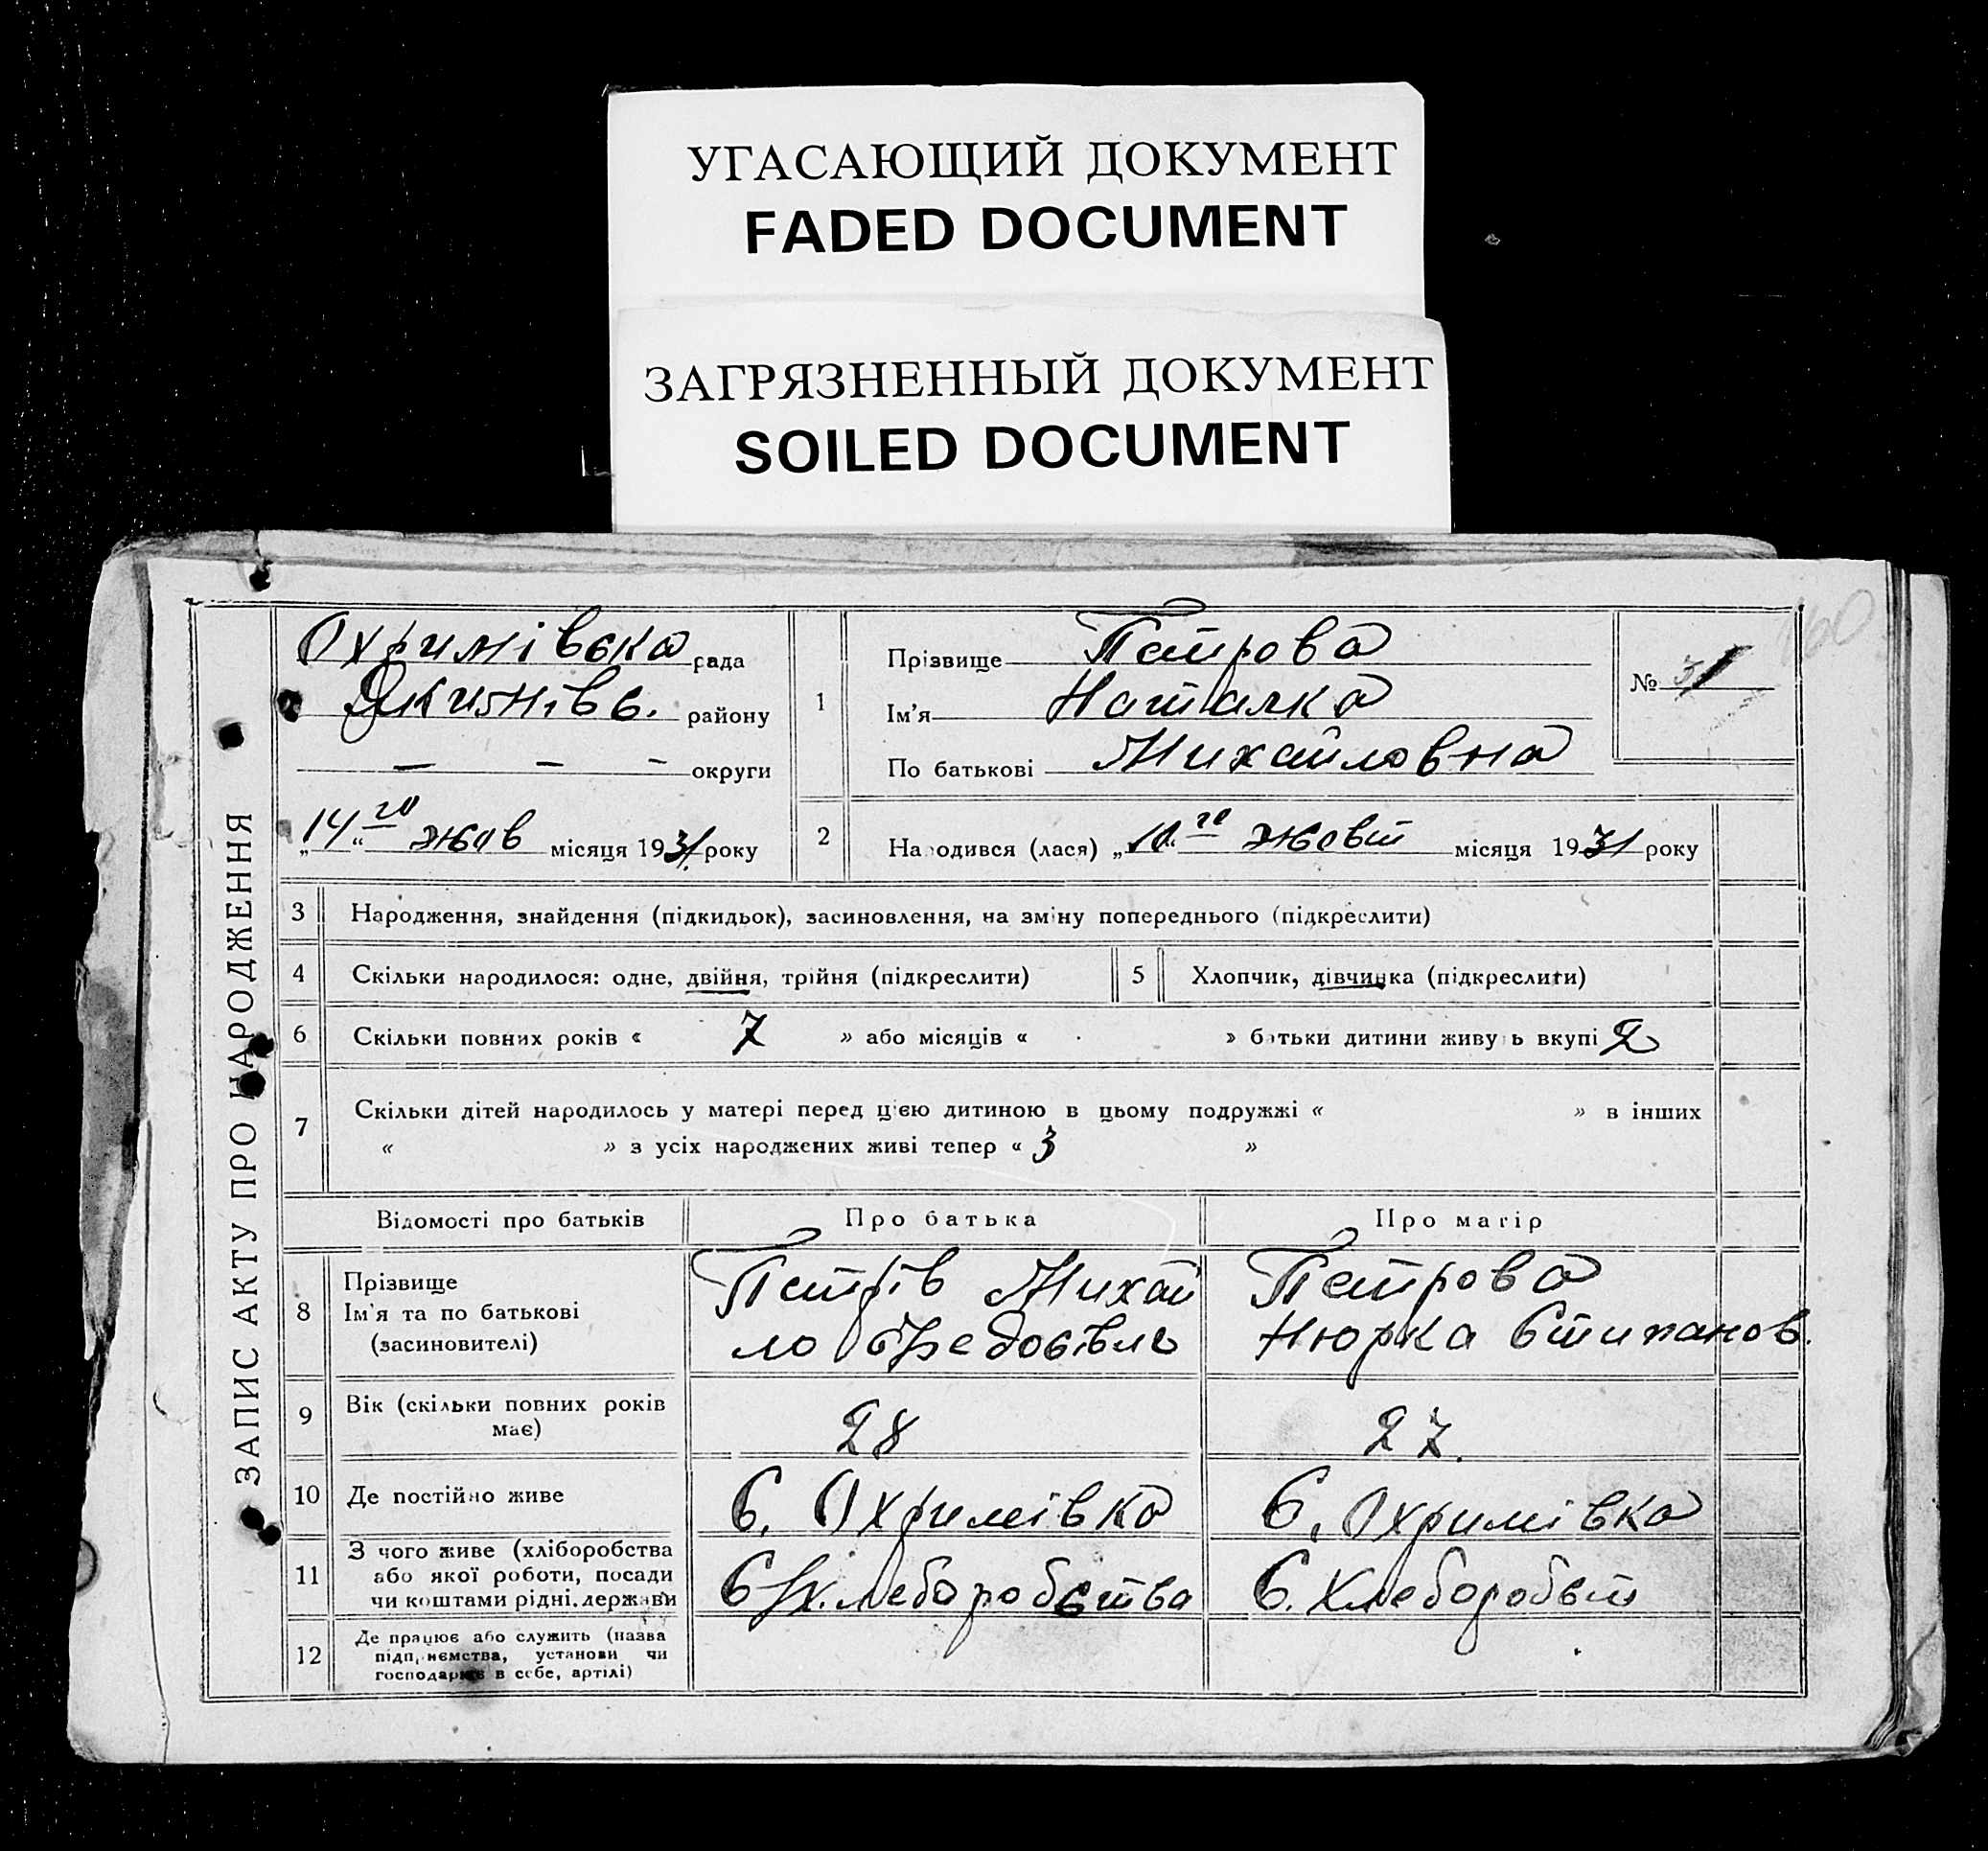 УГАСАЮЩИЙ ДОКУМЕНТ
FADED DOCUMENT
ЗАГРЯЗНЕННЫЙ ДОКУМЕНТ
SOILED DOCUMENT
160
ЗАПИС АКТУ ПРО НАРОДЖЕННЯ
Охримівска рада
Якимівс. району
— — — округи
„14“ го жов місяця 1931 року
1
Прізвище Петрова
Ім'я Наталка
По батькові Михайловна
№ 31
2
Народився (лася) „10“ го жовт місяця 1931 року
3 Народження, знайдення (підкидьок), засиновлення, на зміну попереднього (підкреслити)
4 Скільки народилося: одне, двійня, трійня (підкреслити)
5 Хлопчик, дівчинка (підкреслити)
6 Скільки повних років « 7 » або місяців « » батьки дитини живуть вкупі 2
7 Скільки дітей народилось у матері перед цією дитиною в цьому подружжі « » в інших
« » з усіх народжених живі тепер « 3 »
Відомості про батьків Про батька Про матір
8 Прізвище
Ім'я та по батькові
(засиновителі)
Петрів Михай
ло Федосівич
Петрова
Нюрка Стипанов.
9 Вік (скільки повних років
має)
28 27.
10 Де постійно живе С. Охримівка С. Охримівка
11 З чого живе (хліборобства
або якої роботи, посади
чи коштами рідні, держави
хлеборобства С. Хлеборобст
12 Де працює або служить (назва
підприємства, установи чи
господарює в себе, артілі)